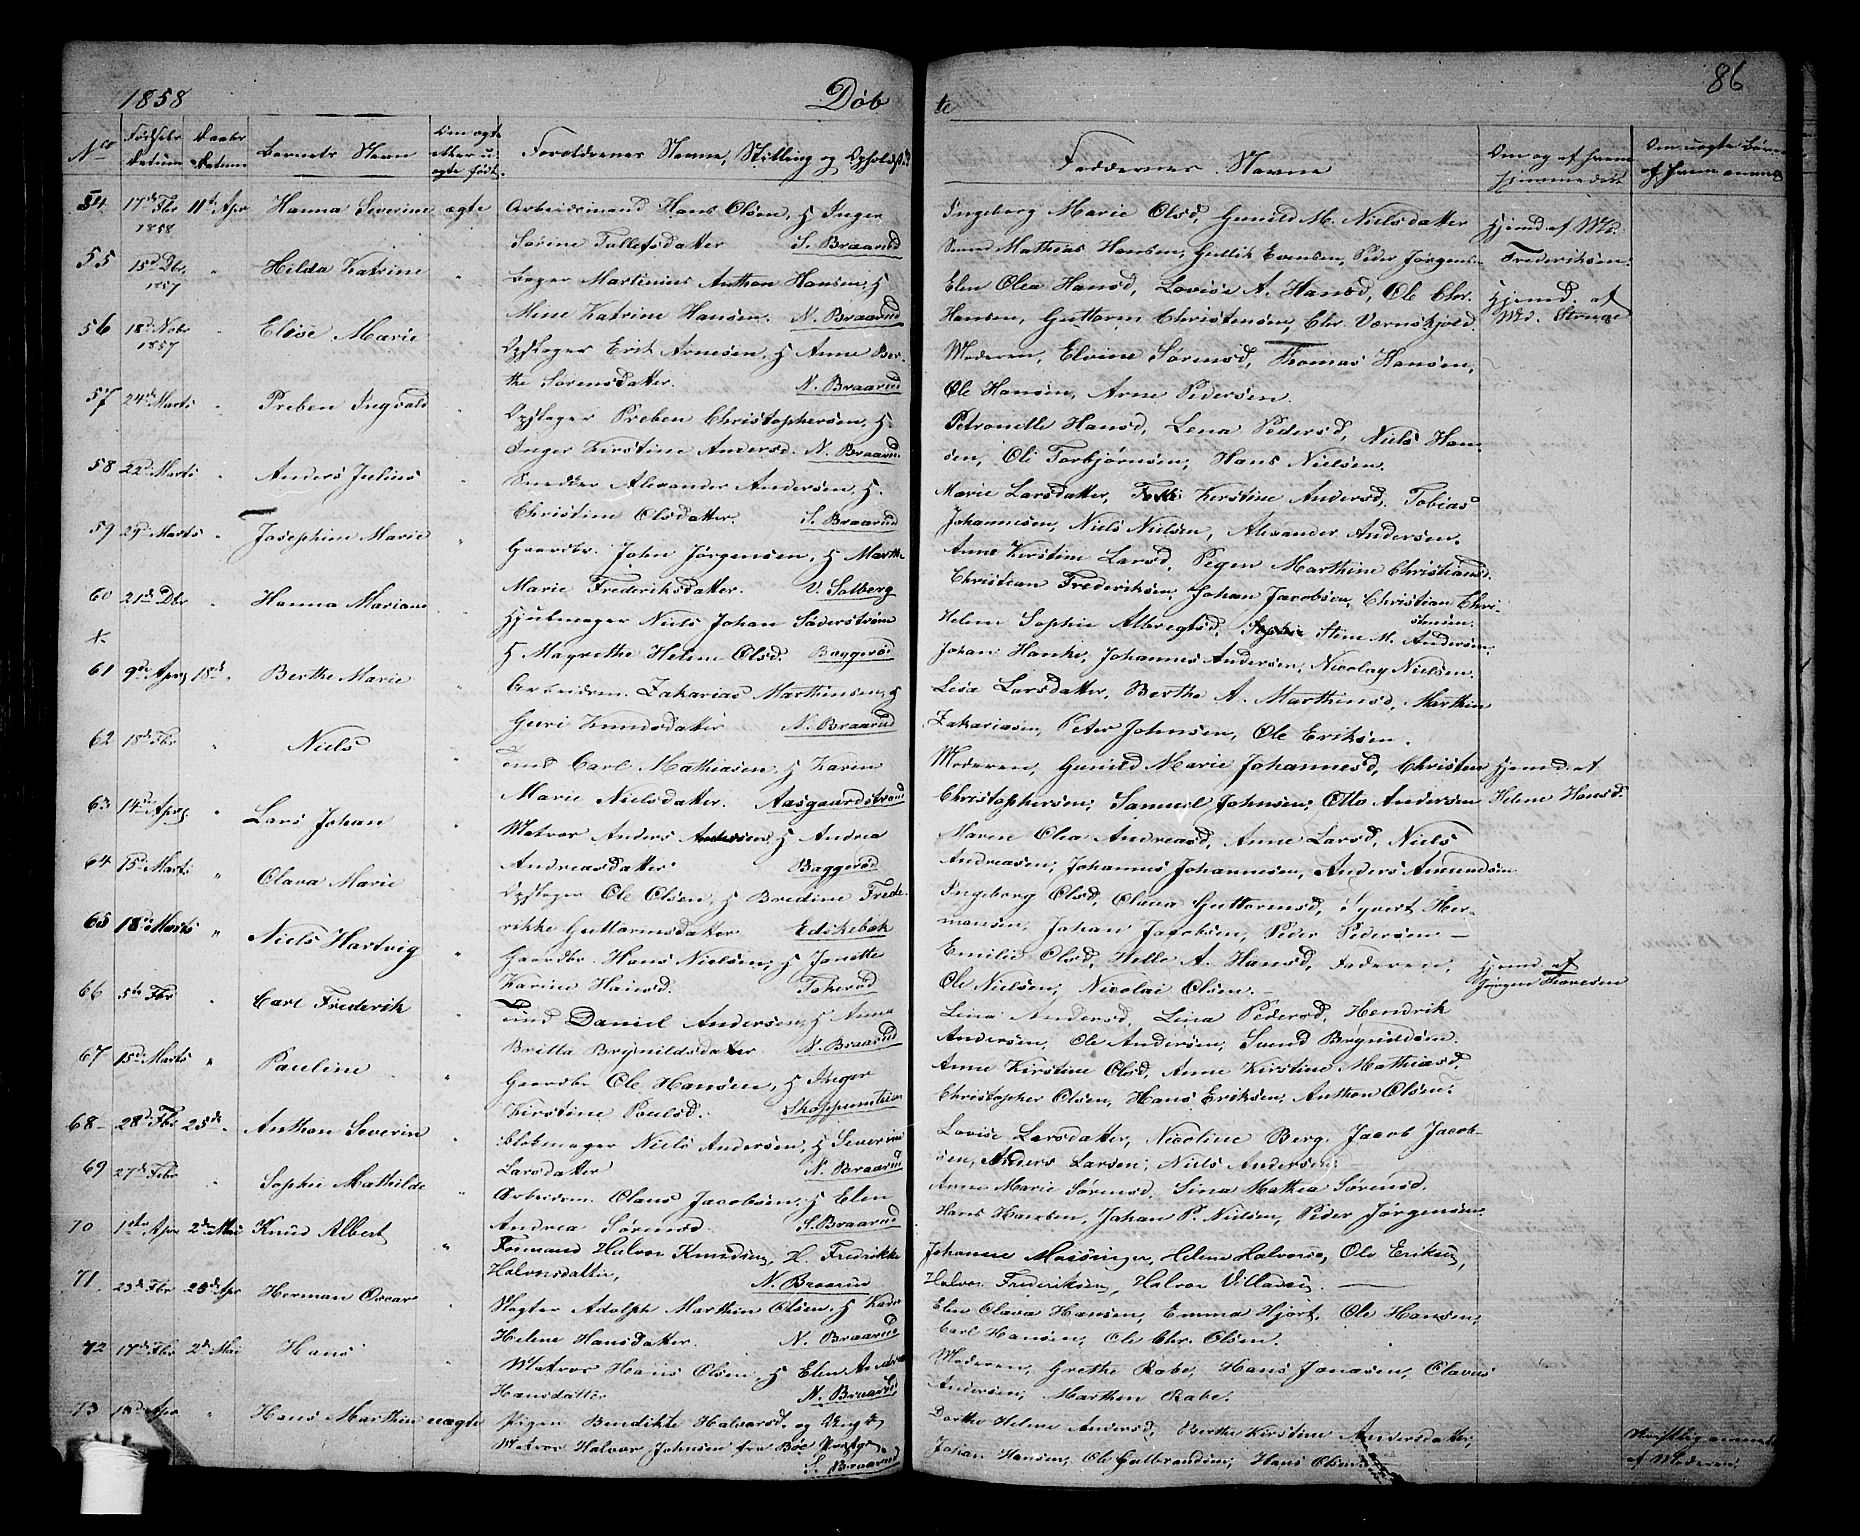 1858 Döb te 86
No Födsels Datum Daabs Datum Barnets Navn Om ægte eller uægte født. Forældrenes Navne, Stilling og Opholdsst.
Faddernes Navne
Om og af hvem hjemmedöbt
Om uægte Børn af hvem anm.
54 17de Fbr 1858 11te Apr Hanna Severine ægte Arbeidsmand Hans Olsen, H Inger
Sørine Tollefsdatter S. Braarud
Ingeborg Marie Olsd, Gunild M. Nielsdatter
Svend Mathias Hansen, Gullik Evensen, Peder Jørgensen
Hjemd. af Md. Frederiksen.
55 15de Dbr. 1857 " Hilda Katrine " Bager Martinius Anthon Hansen, H
Mine Katrine Hansen. N. Braarud
Elen Olea Hansd, Lovise A. Hansd, Ole Chr.
Hansen, Guttorm Christensen, Chr. Værnskjold.
Hjemd. af Md. Strange
56 18de Novbr 1857 Elise Marie Opsloger Erik Arnesen, H Anne Ber-
the Sørensdatter. N. Braarud
Moderen, Elvine Sørensd, Thomas Hansen,
Ole Hansen, Arne Pedersen.
57 24de Marts " Preben Ingvald " Opsloger Preben Christophersen, H.
Inger Kirstine Andersd. N. Braarud
Petronille Hansd, Lena Pedersd, Niels Han-
sen, Ole Torbjørnsen, Hans Nielsen.
58 22de Marts " Anders Julius " Snedker Alexander Andersen, H.
Christine Olsdatter. S. Braarud
Marie Larsdatter, Kirstine Andersd, Tobias
Johannesen, Niels Nielsen, Alexander Andersen.
59 29de Marts " Josephine Marie " Gaardbr. John Jørgensen, H Marthe
Marie Frederiksdatter. V. Solberg
Anne Kirstine Larsd, Pigen Marthine Christiansd.
Christian Frederiksen, Johan Jacobsen, Christian Chri-
stensen.
60 21de Dbr " Hanna Mariane " Hjulmager Niels Johan Søderstrøm
H Magrethe Helene Olsd. Baggerød
Helene Sophie Albregtsd, Stine M. Andersen.
Johan Hanke, Johannes Andersen, Nicolay Nielsen.
61 9de Apr 18de " Berthe Marie " Arbeidsm. Zakarias Marthinsen, H
Guri Knudsdatter N. Braarud
Lesa Larsdatter, Berthe A. Marthinsd, Marthin
Zakariasen, Peter Johnsen, Ole Eriksen.
62 18de Fbr " Niels " Und Carl Mathiasen, H Karen
Marie Nielsdatter. Aasgaardstrand
Moderen, Gunild Marie Johannesd, Christen
Christophersen, Samuel Johnsen, Otto Andersen
Hjemd. af Helene Hansd.
63 14de Apr " Lars Johan " Matros Anders Andersen, H Andrea
Andreasdatter Baggerød
Maren Olea Andreasd, Anne Larsd, Niels
Andreasen, Johannes Johannesen, Anders Amundsen
64 15de Marts " Olava Marie " Opsloger Ole Olsen, H Bredine Frede-
rikke Guttormsdatter Edikebak
Ingeborg Olsd, Olava Guttormsd, Syvert Her-
mansen, Johan Jacobsen, Peder Pedersen
65 18de Marts " Niels Hartvig " Gaardbr. Hans Nielsen, H Jonette
Karine Hansd. Tokerød
Emilie Olsd, Helle A. Hansd, Faderen,
Ole Nielsen, Nicolai Olsen.
Hjemd. af Jørgen Thoresen
66 5te Fbr " Carl Frederik " Und Daniel Andersen, H Anna
Britta Brynildsdatter N. Braarud
Lina Andersd, Lina Pedersd, Hendrik
Andersen, Ole Andersen, Svend Brynildsen.
67 15de Marts " Pauline " Gaardbr Ole Hansen, H Inger
Kirstine Poulsd. Skoppumteien
Anne Kirstine Olsd, Anne Kirstine Mathiasd,
Christopher Olsen, Hans Eriksen, Anthon Olsen.
68 28de Fbr 25de " Anthon Severin " Blokmager Niels Andersen, H Severine
Larsdatter N. Braarud
Lovise Larsdatter, Nicoline Berg, Jacob Jacob-
sen, Anders Larsen, Niels Andersen.
69 27de Febr " Sophie Mathilde " Arbeidsm. Claus Jacobsen, H Elen
Andrea Sørensd. S. Braarud
Anne Marie Sørensd. Lina Mathea Sørensd.
Hans Hansen, Johan P. Nielsen, Peder Jørgensen
70 1ste Apr 2de Mai Knud Albert " Tømmand Halvor Knudsen, H. Fredrikke
Halvorsdatter, N. Braarud
Johanne Helene Halvorsd, Ole Eriksen,
Halvor Frederiksen, Halvor Villadsen.
71 23de Fbr 25de Apr Herman Oscar " Vægter Adolph Marthin Olsen, H Karen
Helene Hansdatter. N. Braarud
Elen Olava Hansen, Emma Hjort, Ole Hansen,
Carl Hansen, Ole Chr. Olsen.
72 17de Fbr 2de Mai Hans " Matros Hans Olsen, H Elen Andrea
Hansdatter N. Braarud
Moderen, Grethe Rabe, Hans Jonasen, Olavus
Andersen, Marthin Rabe.
73 18de Apr " Hans Marthin uægte Pigen Bendikte Halvorsd. og Ungk.
Matros Halvor Johnsen fra Böe Prstgj.
S. Braarud
Dorthe Helene Andersd, Berthe Kirstine Andersdatter,
Johan Hansen, Ole Gulbrandsen, Hans Olsen
Skriftlig anmeldt af Moderen.